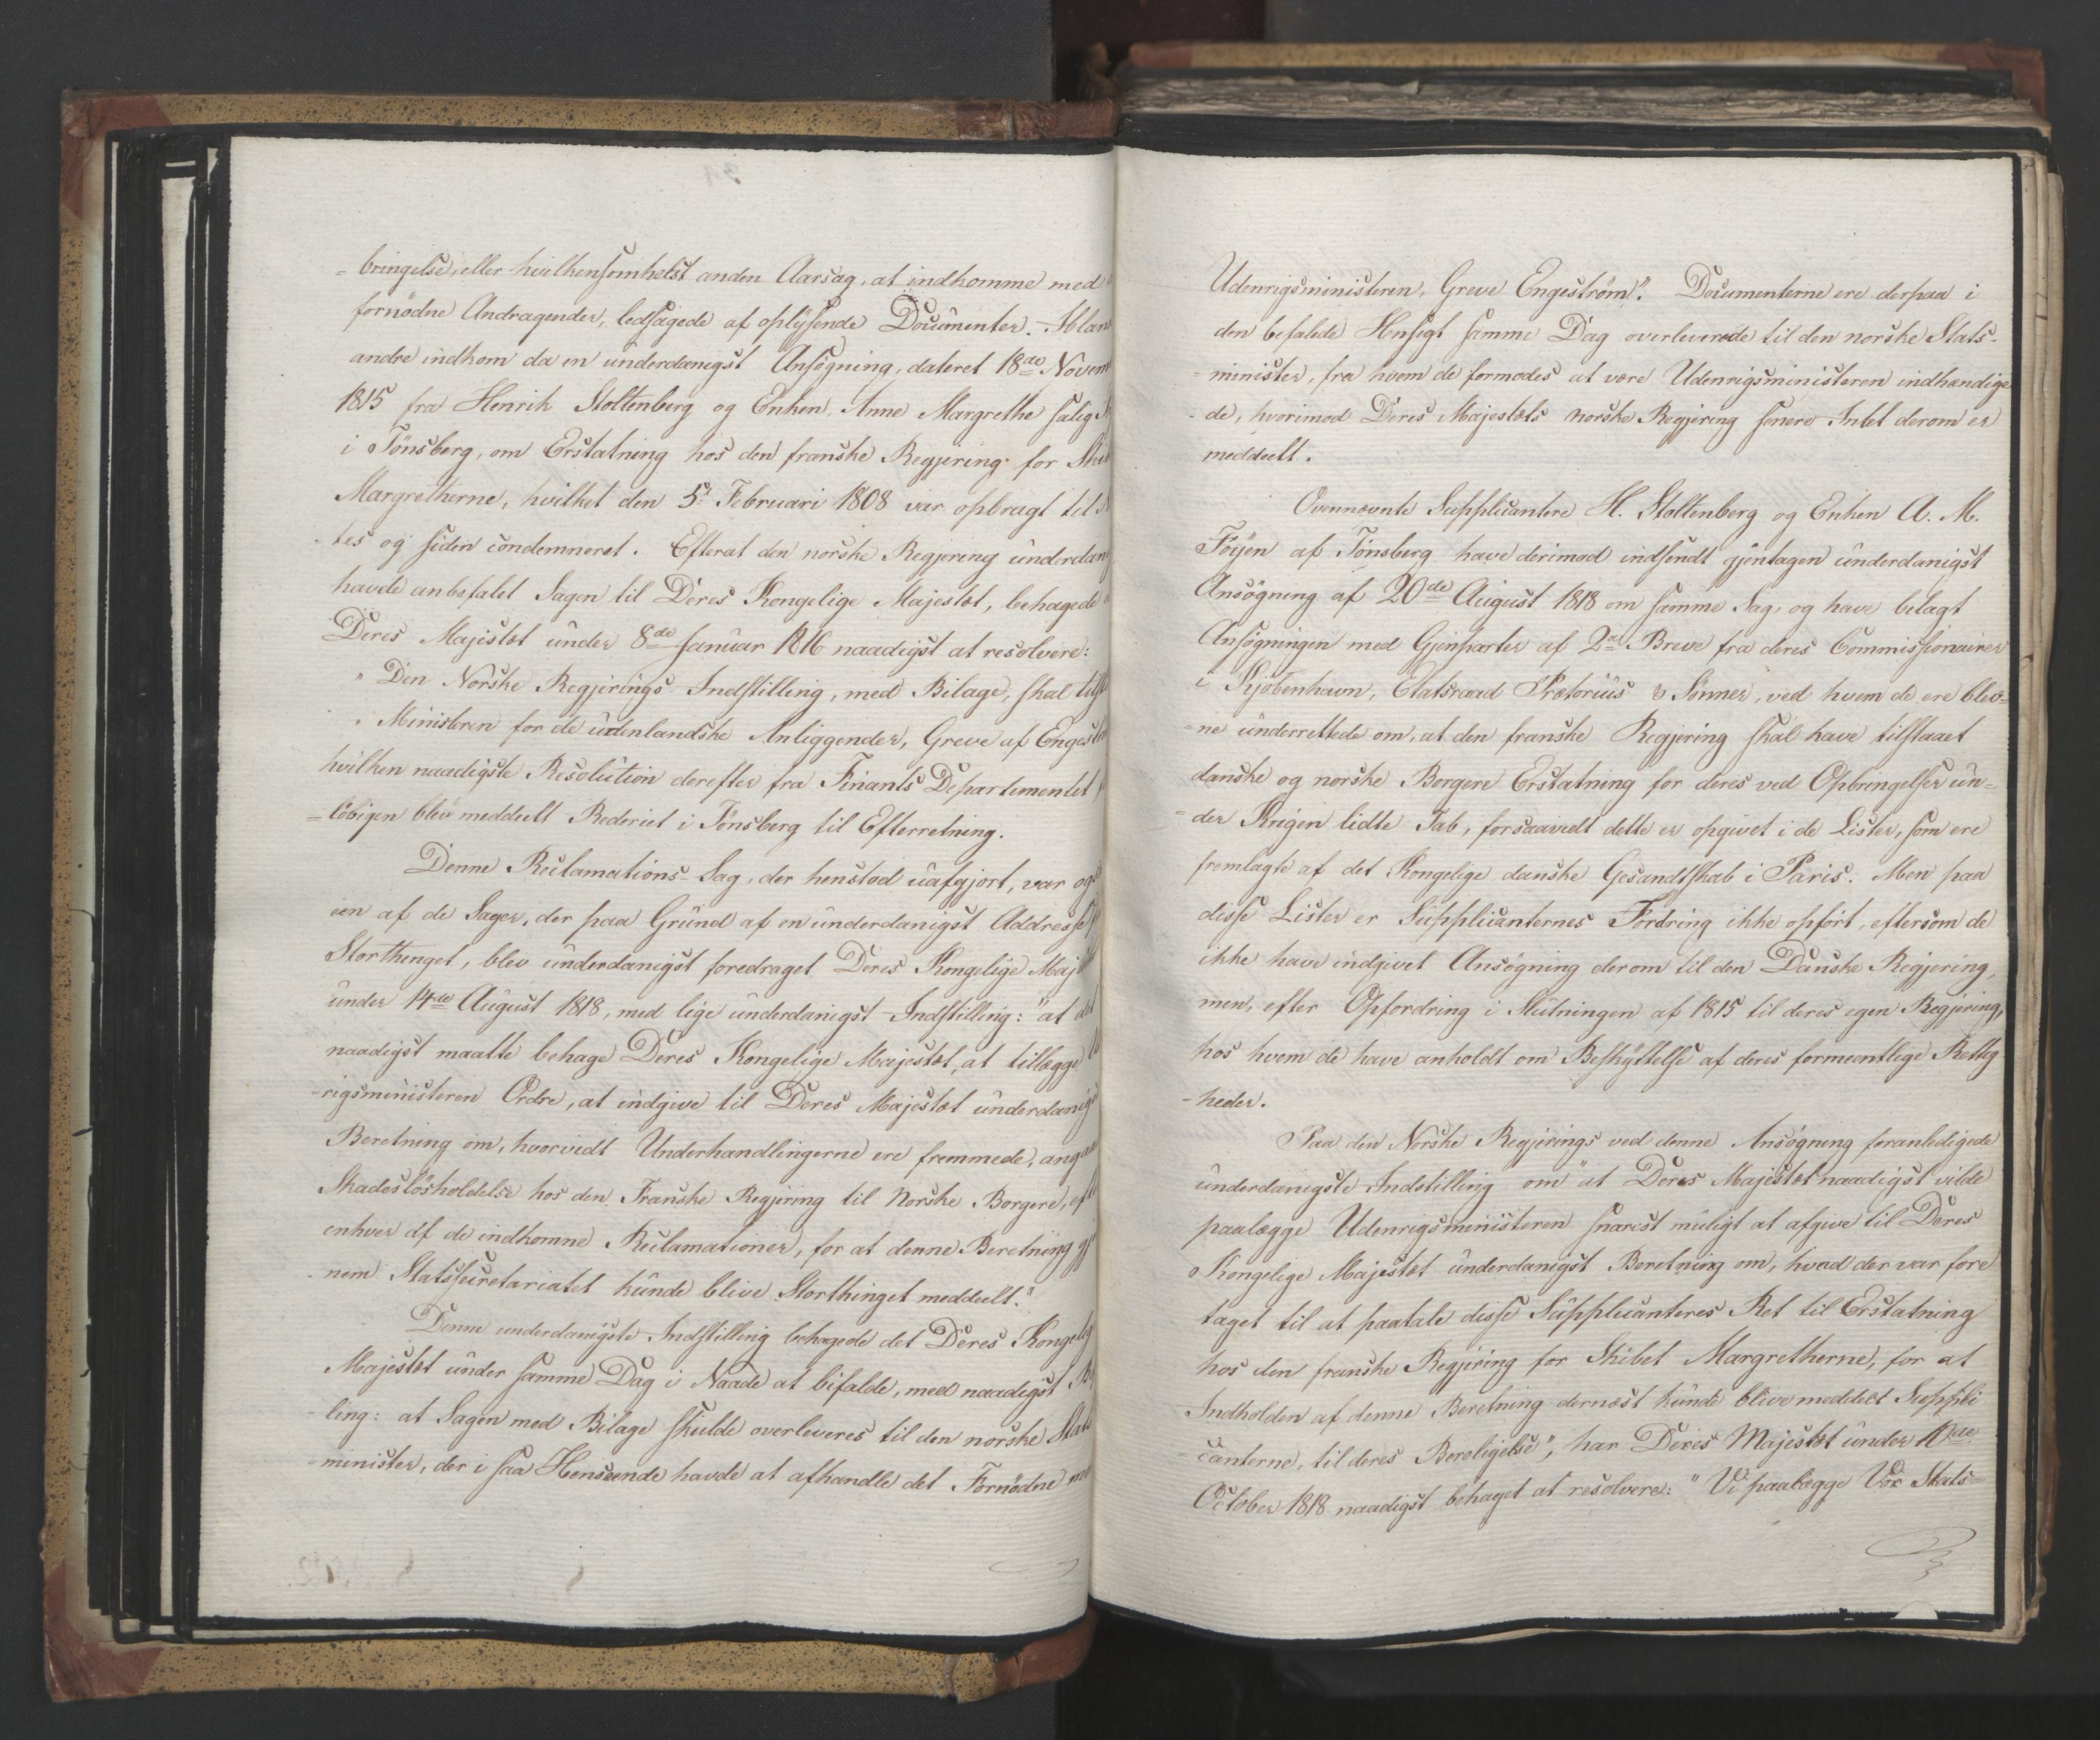 = bringelse, eller hvilkensomhelst anden Aarsag, at indkomme med
fornödne Andragender, ledsagede af oplysende Documenter. Iblan
andre indkom da en underdanigst Ansögning, dateret 18de Novem
1815 fra Henrik Stoltenberg og Enken, Anne Margrethe salig
i Tönsberg, om Erstatning hos den franske Regjering for Ski
Margretherne, hvilket den 5te Februari 1808 var opbragt til
- tes og siden condemneret. Efterat den norske Regjering underdan
havde anbefalet Sagen til Deres Kongelige Majestæt, behagede
Deres Majestæt under 8de Januar 1816 naadigst at resolvere:
" Den Norske Regjerings Indstilling, med Bilage, skal tilst
" Ministeren for de udenlandske Anliggender, Greve af Engestr
hvilken naadigste Resolution derefter fra Finants Departementet
= löbigen blev meddeelt Rederiet i Tönsberg til Efterretning.
Denne Reclamations-Sag, der henstod uafgjort, var og
een af de Sager, der paa Grund af en underdanigst Addresse
Storthinget, blev underdanigst foredraget Deres Kongelige Maj
under 14de August 1818, med lige underdanigst Indstilling: "at det
naadigst maatte behage Deres Kongelige Majestæt, at tillægge
- rigsministeren Ordre, at indgive til Deres Majestæt underdanig
Beretning om, hvorvidt Underhandlingerne ere fremmede, anga
Skadeslösholdelse hos den Franske Regjering til Norske Borgere, eft
enhver af de indkomne Reclamationer, for at denne Beretning gj
- nem Statssecretariatet kunde blive Storthinget meddeelt."
Denne underdanigste Indstilling behagede det Deres Kongelig
Majestæt under samme Dag i Naade at bifalde, med naadigst
- ling: at Sagen med Bilage skulde overleveres til den norske Stats
- minister, der i saa Henseende havde at afhandle det Fornödne me
Udenrigsministeren, Greve Engeström". Documenterne ere derpaa i
den befalede Hensigt samme Dag overleverede til den norske Stats-
- minister, fra hvem de formodes at være Udenrigsministeren indhændige
- de, hvorimod Deres Majestæts norske Regjering senere Intet derom er
meddeelt.
Ovennævnte Supplicantere H. Stoltenberg og Enken A. M.
Föyen af Tönsberg have derimod indsendt gjentagen underdanigst
Ansögning af 20de August 1818 om samme Sag, og have belagt
Ansögningen med Gjenparter af 2de Breve fra deres Commissionairer
i Kjöbenhavn, Etatsraad Prætorius & Sönner, ved hvem de ere blev-
= ne underrettede om, at den franske Regjering skal have tilstaaet
danske og norske Borgere Erstatning for deres ved Opbringelser un-
- der Krigen lidte Tab, forsaavidt dette er opgivet i de Lister, som ere
fremlagte af det Kongelige danske Gesandtskab i Paris. Men paa
disse Lister er Supplicanternes Fordring ikke opfört, eftersom de
ikke have indgivet Ansögning derom til den Danske Regjering,
men, efter Opfordring i Slutningen af 1815 til deres egen Regjering,
hos hvem de have anholdt om Beskyttelse af deres formeentlige Rettig
- heder.
Paa den Norske Regjerings ved denne Ansögning foranledigede
underdanigste Indstilling om "at Deres Majestæt naadigst vilde
paalægge Udenrigsministeren snarest muligt at afgive til Deres
Kongelige Majestæt underdanigst Beretning om, hvad der var fore
taget til at paatale disse Supplicanteres Ret til Erstatning
hos den franske Regjering for Skibet Margretherne, for at
Indholden af denne Beretning dernæst kunde blive meddeelt Suppli
canterne, til deres Beroligelse", har Deres Majestæt under
October 1818 naadigst behaget at resolvere: "Vi paalægge Vor Stats=